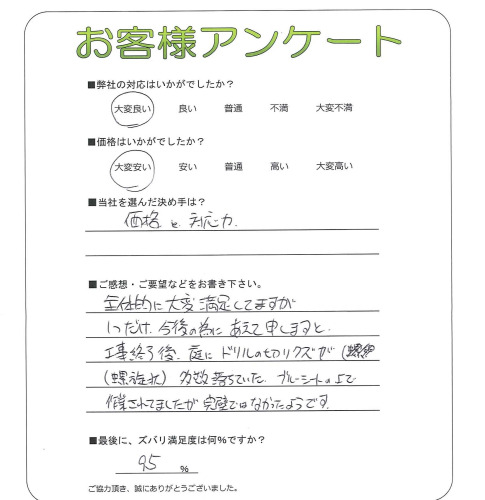 お客様アンケート
■弊社の対応はいかがでしたか?
大変良い 良い 普通 不満 大変不満
■価格はいかがでしたか?
大変安い 安い 普通 高い 大変高い
■当社を選んだ決め手は?
価格と対応力.
■ご感想・ご要望などをお書き下さい。
全体的に大変満足してますが
1つだけ、今後の為にあえて申しますと、
工事終了後、庭にドリルの切りクズが
(螺旋状)多数落ちていた。ブルーシートの上で
作業されてましたが完璧ではなかったようです。
■最後に、ズバリ満足度は何%ですか?
95 %
ご協力頂き、誠にありがとうございました。